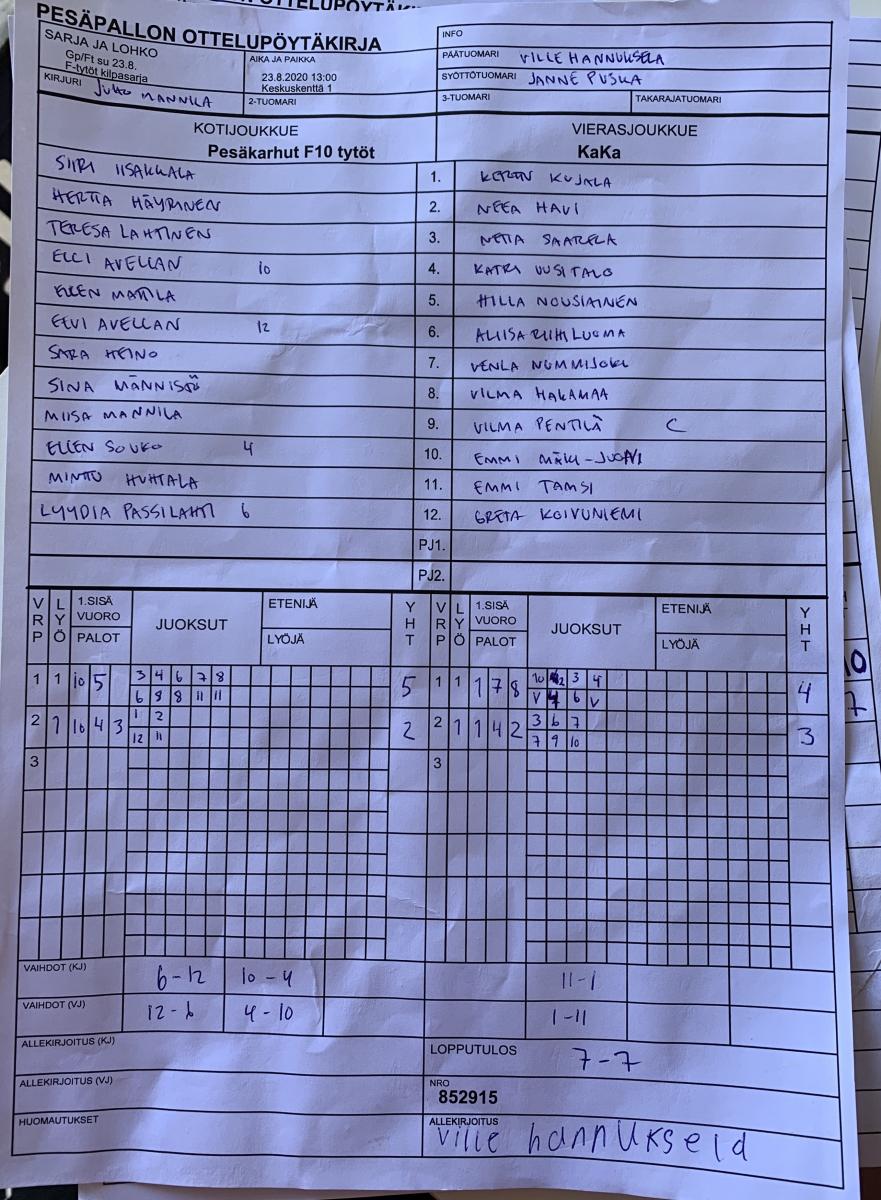 PESÄPALLON OTTELUPÖYTÄKIRJA
SARJA JA LOHKO
Gp/Ft su 23.8.
F-tytöt kilpasarja
AIKA JA PAIKKA
23.8.2020 13:00
Keskuskenttä 1
KIRJURI JUHO MANNILA
2-TUOMARI
INFO
PÄÄTUOMARI VILLE HANNUKSELA
SYÖTTÖTUOMARI JANNE PUSKA
3-TUOMARI TAKARAJATUOMARI
KOTIJOUKKUE VIERASJOUKKUE
Pesäkarhut F10 tytöt KaKa
SIIRI IISAKKALA 1. KUJALA
HERTTA HÄYRINEN 2. NEEA HAVI
TERESA LAHTINEN 3. NETTA SAARELA
ELLI AVELLAN 10 4. KATRI UUSITALO
ELLEN MATTILA 5. HILLA NOUSIAINEN
EEVI AVELLAN 12 6. ALIISA RIIHILUOMA
SARA HEINO 7. VENLA NUMMIJOKI
SINA MÄNNISTÖ 8. VILMA HAKAMAA
MIISA MANNILA 9. VILMA PENTILÄ C
ELLEN SOUKO 4 10. EMMI
MINTTU HUHTALA 11. EMMI TAMSI
LYYDIA PASSILAHTI 6 12. GRETA KOIVUNIEMI
PJ1.
PJ2.
VRP LYÖ 1.SISÄ VUORO PALOT JUOKSUT ETENIJÄ LYÖJÄ YHT VRP LYÖ 1.SISÄ VUORO PALOT JUOKSUT ETENIJÄ LYÖJÄ YHT
1 1 10 5 3 4 6 7 8 5 1 1 1 7 8 10 3 4 4
6 8 8 11 11 V 6 V
2 1 10 4 3 1 2 2 2 1 1 4 2 3 6 7 3
12 11 7 9 10
3 3
VAIHDOT (KJ) 6-12 10-4 11-1
VAIHDOT (VJ) 12-6 4-10 1-11
ALLEKIRJOITUS (KJ) LOPPUTULOS 7-7
ALLEKIRJOITUS (VJ) NRO
852915
HUOMAUTUKSET ALLEKIRJOITUS
ville hannuksela